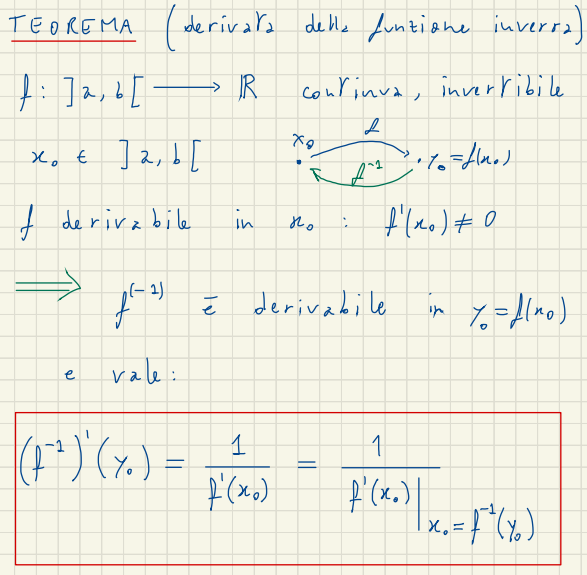 TEOREMA (derivata della funzione inversa)
f: ]a, b[ ⟶ ℝ continua, invertibile
x₀ ∈ ]a, b[ x₀ f f⁻¹ y₀ = f(x₀)
f derivabile in x₀ : f'(x₀) ≠ 0
⟹ f⁽⁻¹⁾ è derivabile in y₀ = f(x₀)
e vale:
(f⁻¹)'(y₀) = 1/f'(x₀) = 1/f'(x₀)|x₀ = f⁻¹(y₀)